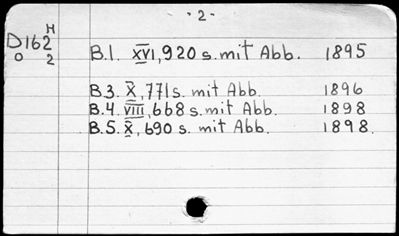 - 2 -
H
D162
o 2
B.1. XVI, 920 s. mit Abb. 1895
B.3. X, 771 s. mit Abb. 1896
B.4. VIII, 668 s. mit Abb. 1898
B.5. X, 690 s. mit Abb. 1898.